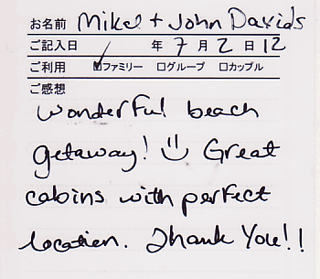 お名前 Mike + John Davids
ご記入日 年 7 月 2 日 12
ご利用 ☑ファミリー □グループ □カップル
ご感想
Wonderful beach
getaway! Great
cabins with perfect
location. Thank You!!